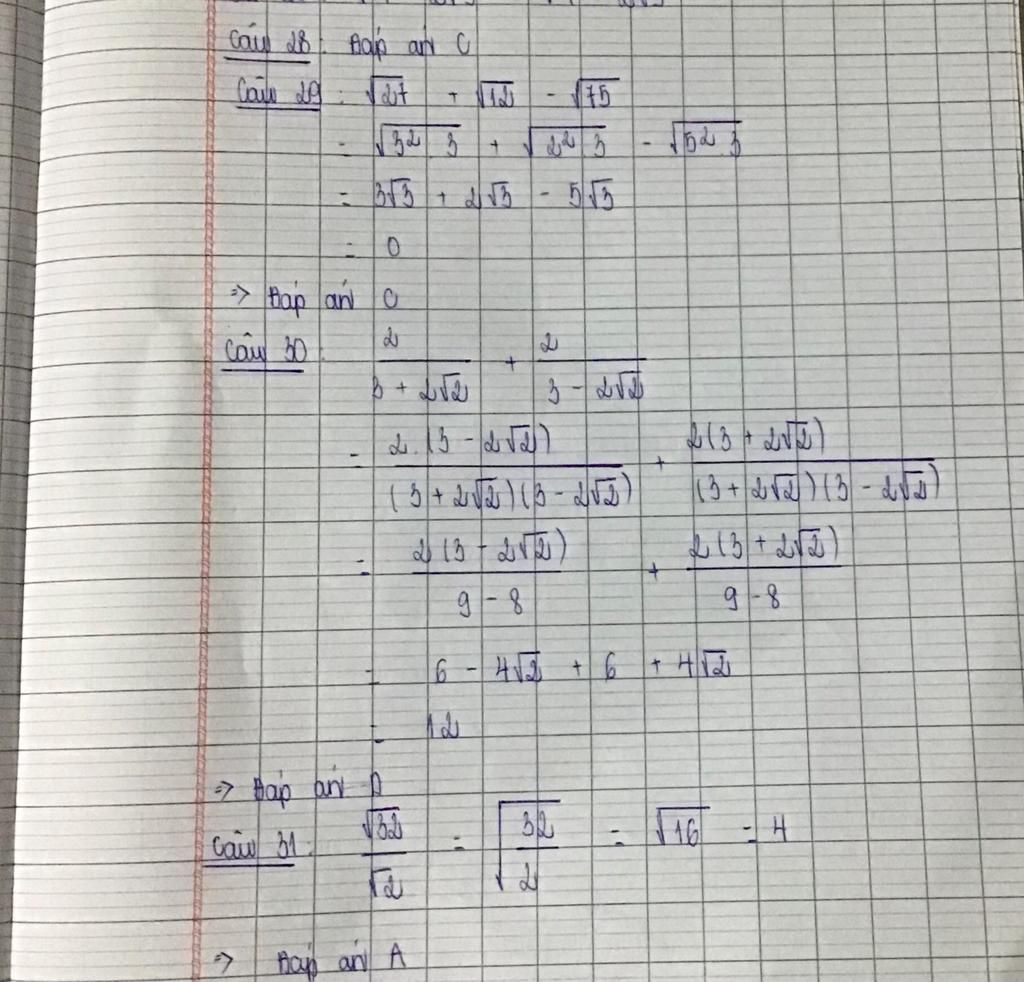 Câu 28: Đáp án C
Câu 29: √27 + √12 - √75
= √(3² 3) + √(2² 3) - √(5² 3)
= 3√3 + 2√3 - 5√3
= 0
=> Đáp án C
Câu 30: 2/(3 + 2√2) + 2/(3 - 2√2)
= 2.(3 - 2√2)/((3 + 2√2)(3 - 2√2)) + 2(3 + 2√2)/((3 + 2√2)(3 - 2√2))
= 2(3 - 2√2)/(9 - 8) + 2(3 + 2√2)/(9 - 8)
= 6 - 4√2 + 6 + 4√2
= 12
=> Đáp án D
Câu 31: √32/√2 = √(32/2) = √16 = 4
=> Đáp án A